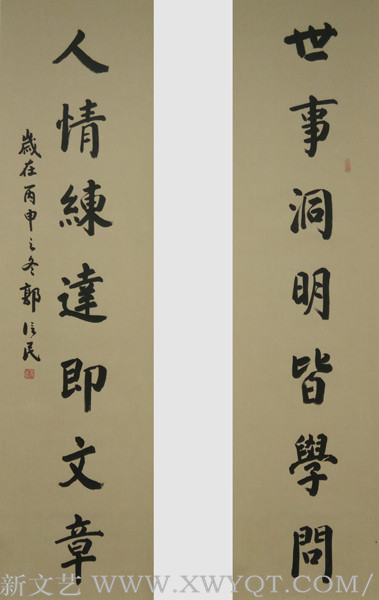 世事洞明皆學問
人情練達即文章
歲在丙申之冬郭信民
新文艺 WWW.XWYQT.COM/